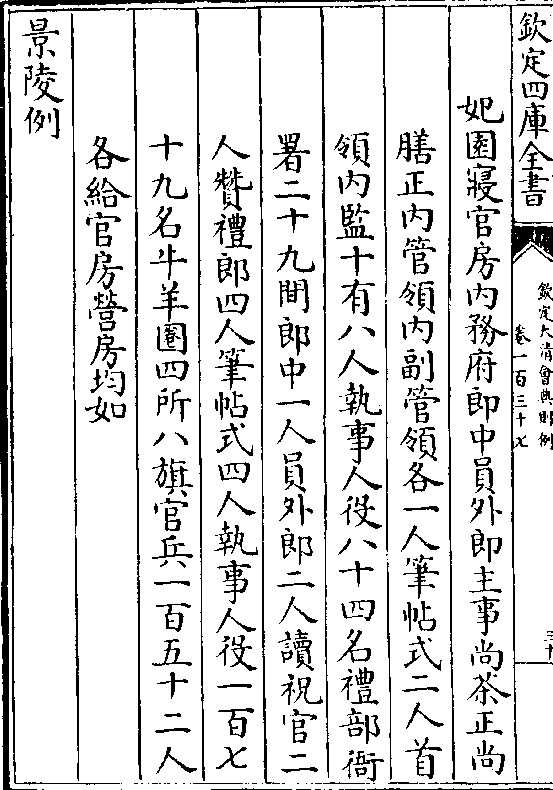 欽定四庫全書
欽定大清會典則例
卷一百三十七
三十
妃園寢官房內務府郎中員外郎主事尚茶正尚
膳正內管領內副管領各一人筆帖式二人首
領內監十有八人執事人役八十四名禮部衙
署二十九間郎中一人員外郎二人讀祝官二
人贊禮郎四人筆帖式四人執事人役一百七
十九名牛羊圏四所八旗官兵一百五十二人
各給官房營房均如
景陵例